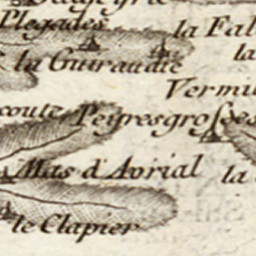 Plegades
la Fal
la Guiraudie
la
Vermi
coute
Peyresgrosses
Mas d'Avrial
la
le Clapier